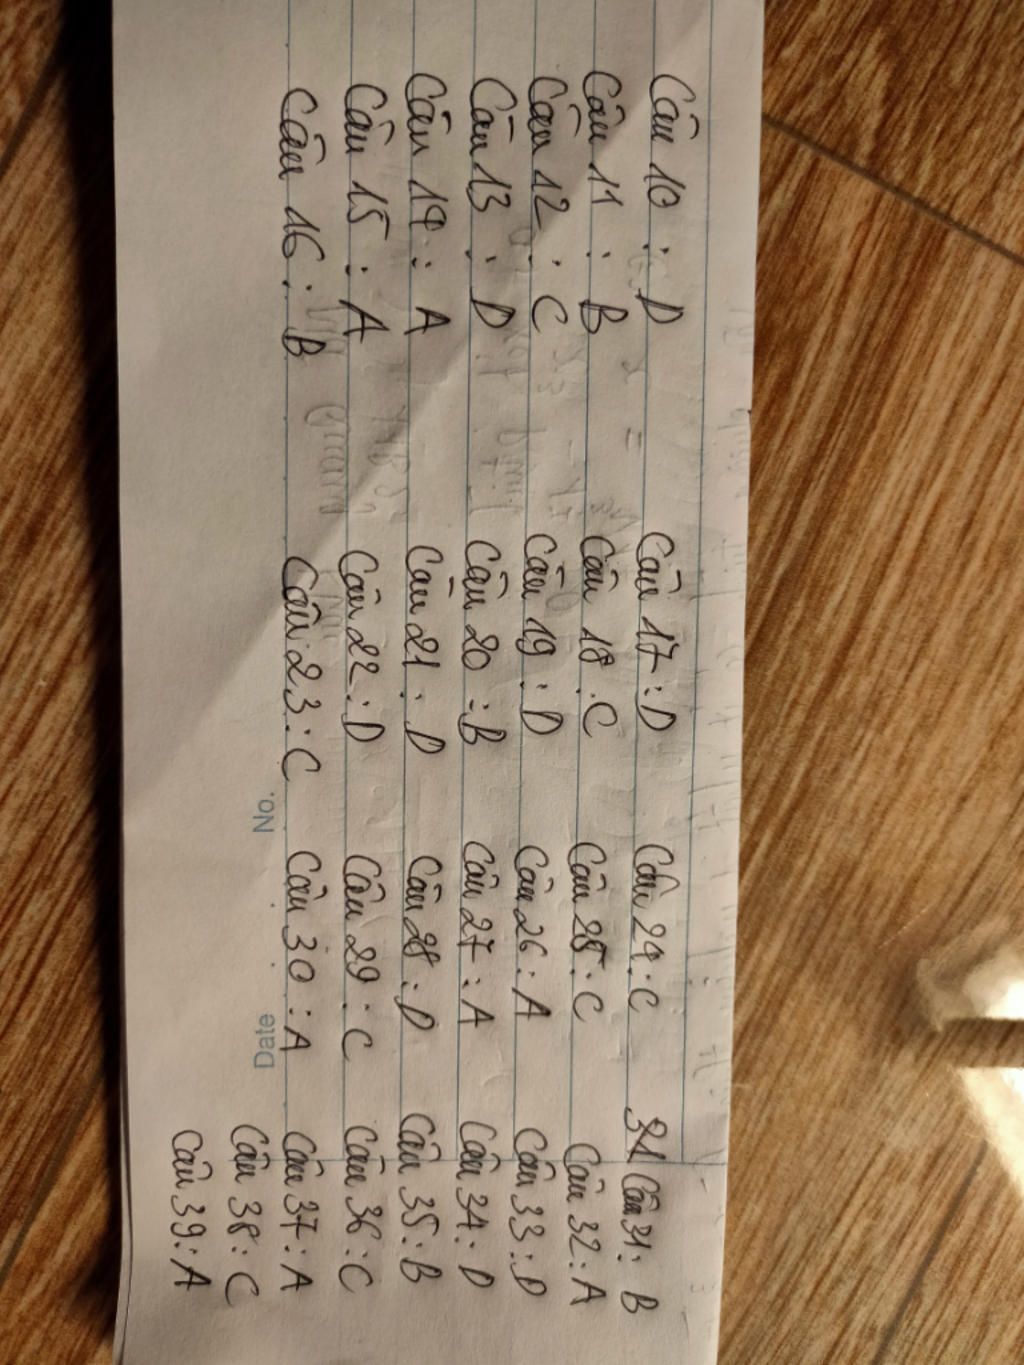 Câu 10 : D
Câu 11 : B
Câu 12 : C
Câu 13 : D
Câu 14 : A
Câu 15 : A
Câu 16 : B
Câu 17 : D
Câu 18 : C
Câu 19 : D
Câu 20 : B
Câu 21 : D
Câu 22 : D
Câu 23 : C
Câu 24 : C
Câu 25 : C
Câu 26 : A
Câu 27 : A
Câu 28 : D
Câu 29 : C
Câu 30 : A
Câu 31 : B
Câu 32 : A
Câu 33 : D
Câu 34 : D
Câu 35 : B
Câu 36 : C
Câu 37 : A
Câu 38 : C
Câu 39 : A
No.
Date